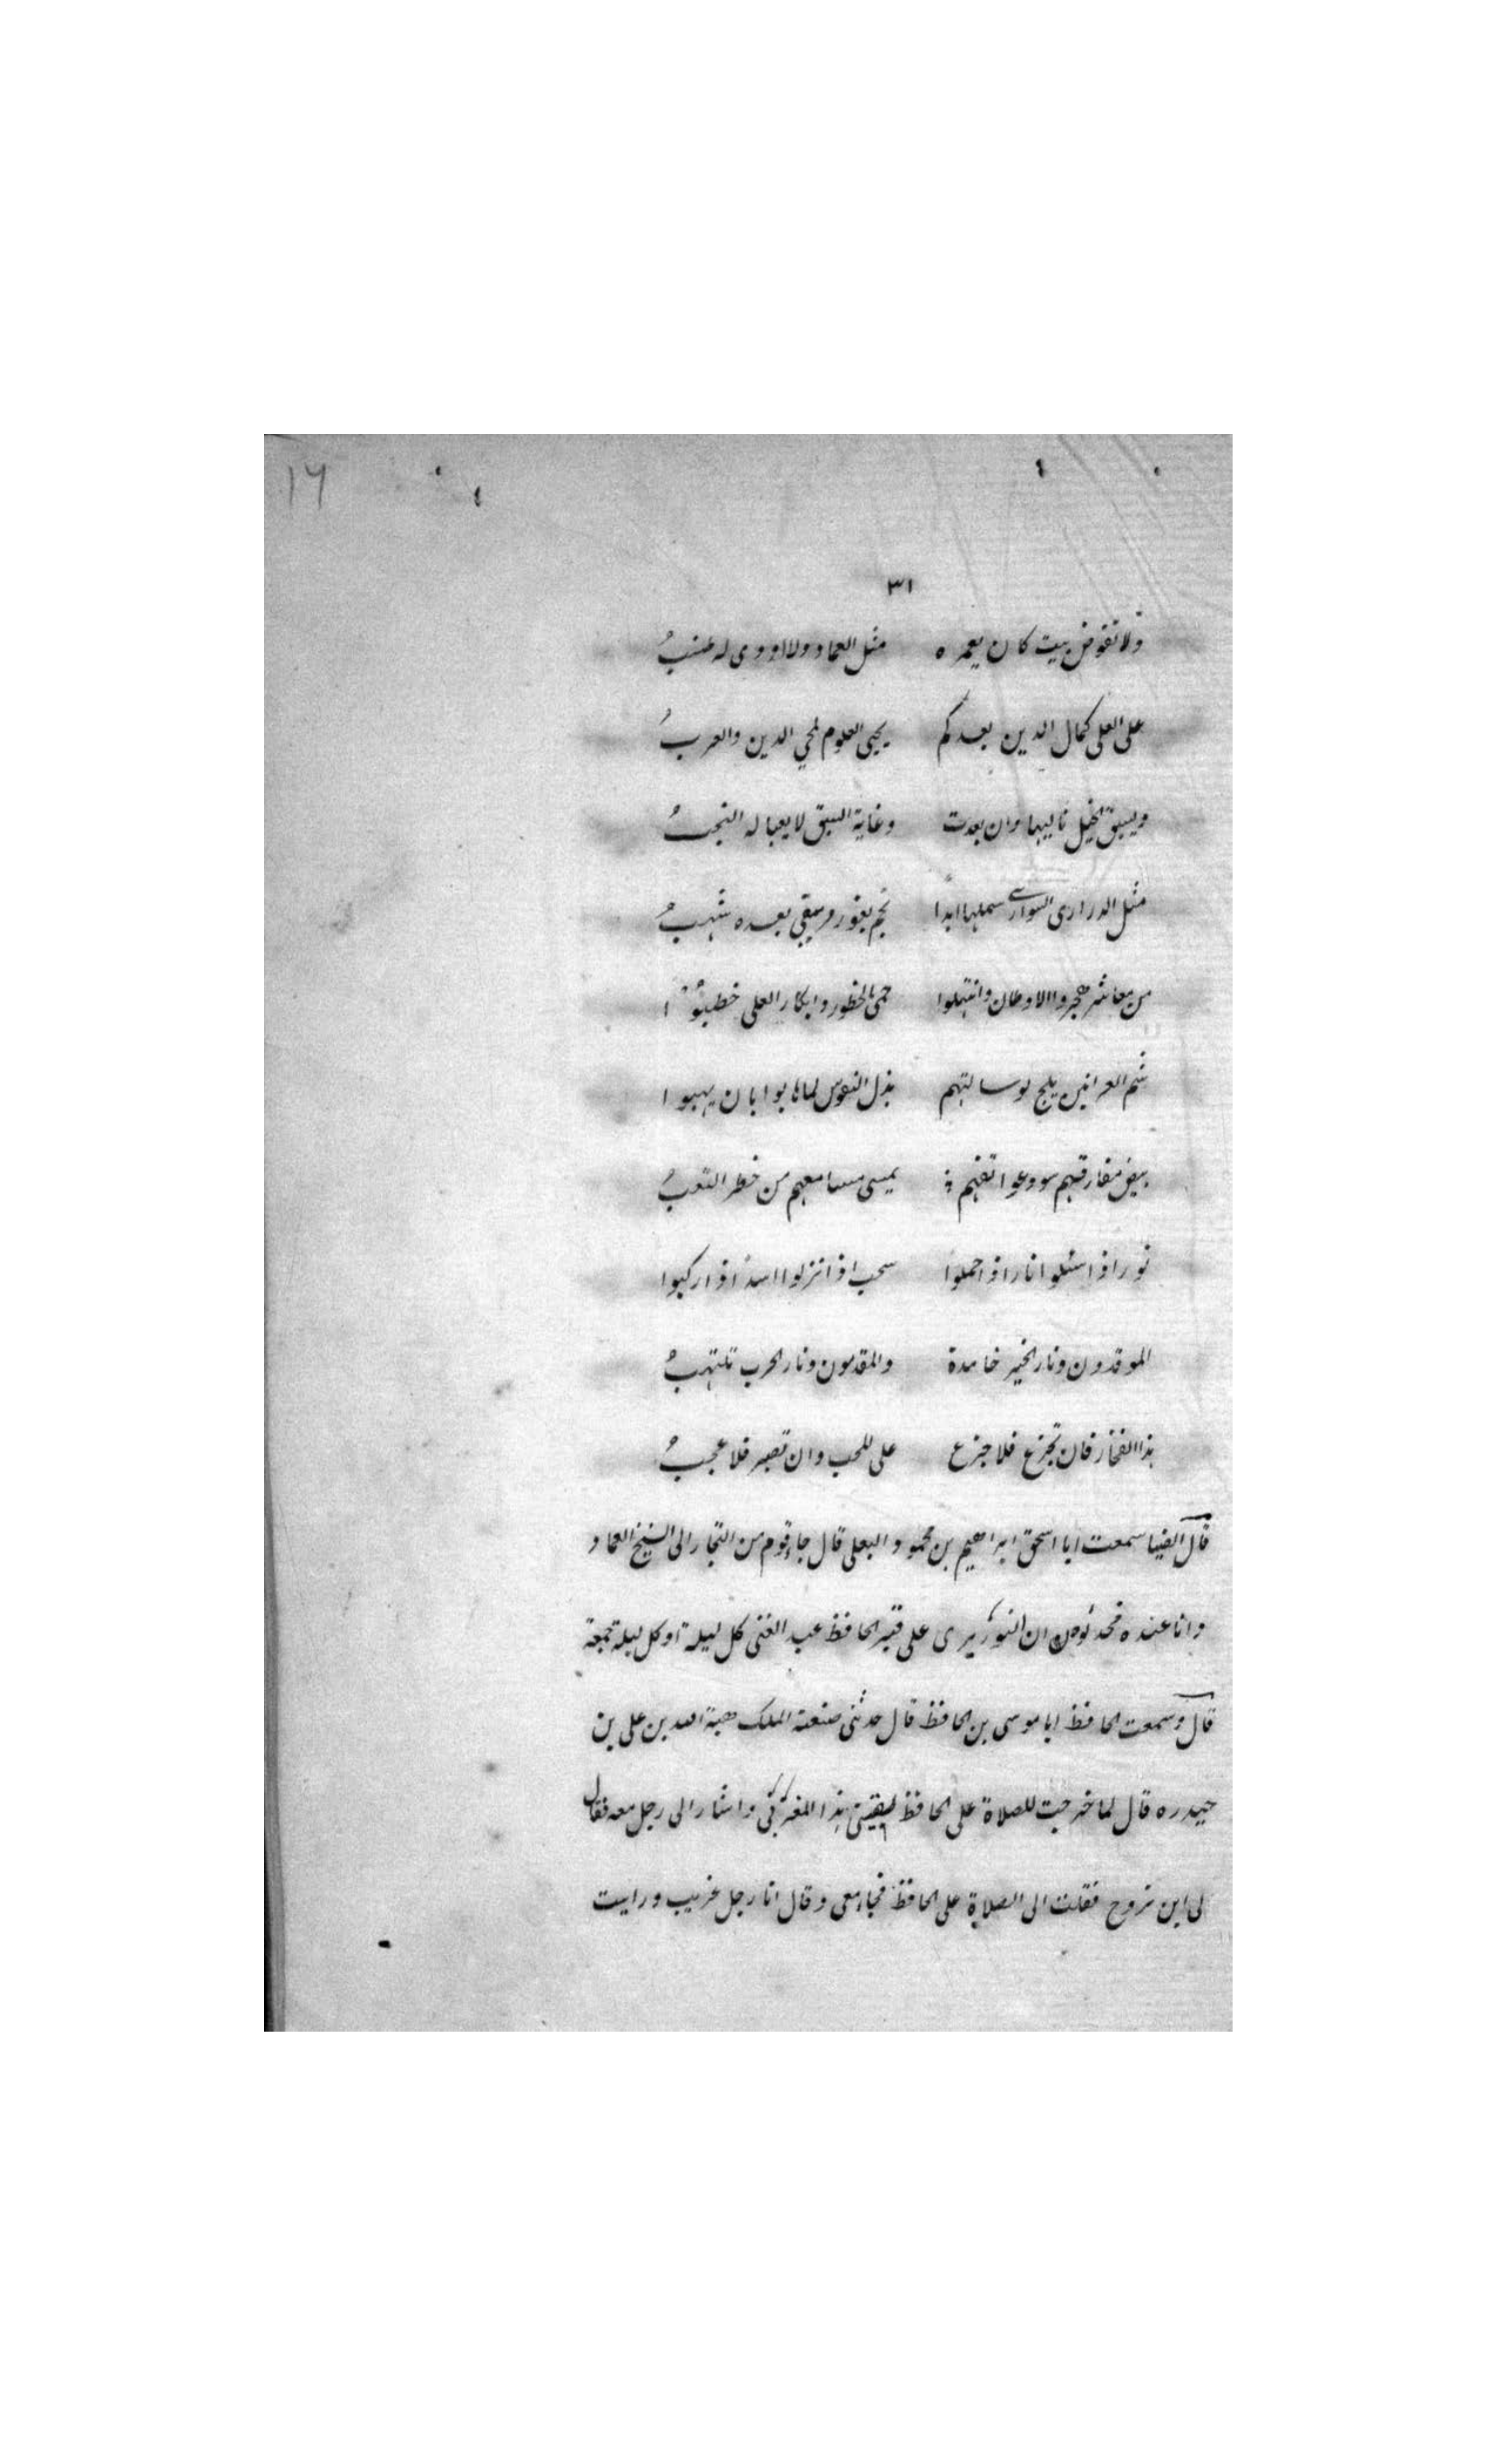 ١٦
٣١
ولا تقوض بيت كان يعمره مثل العماد ولا اودى له طنبُ
على العلى كمال الدين بعدكم يحيى العلوم لمحي الدين والعربُ
ويسبق الخيل تاليها وان بعدت وغاية السبق لا يعبا له النجبُ
مثل الدرارى السوارى شملها ابدا نجم يغور ويبقى بعده شهبُ
من معاشر هجروا الاوطان وانتهلوا حمى الخطور وابكار العلى خطبوا
شم العرانين بلج لو سالتهم بذل النفوس لما هابوا بان يهبوا
بيض مفارقهم سود عواتقهم يمسى مسامعهم من خطر التعبُ
نور اذا اسئلوا نار اذا حملوا سحب اذا نزلوا اسد اذا ركبوا
الموقدون ونار الخير خامدة والمقدمون ونار الحرب تلتهبُ
هذا الفخار فان تجزع فلا جزع على المحب وان تصبر فلا عجبُ
قال الضيا سمعت ابا اسحق ابراهيم بن محمود البعلى قال جاء قوم من التجار الى الشيخ العماد
وانا عنده فحدثوه ان النور يرى على قبر الحافظ عبد الغنى كل ليلة او كل ليلة جمعة
قال وسمعت الحافظ ابا موسى بن الحافظ قال حدثنى صنعة الملك هبة الله بن على بن
حيدره قال لما خرجت للصلاة على الحافظ لقينى هذا المغربى واشار الى رجل معه فقال
لى اين تروح فقلت الى الصلاة على الحافظ فجاء معى وقال انا رجل غريب ورايت